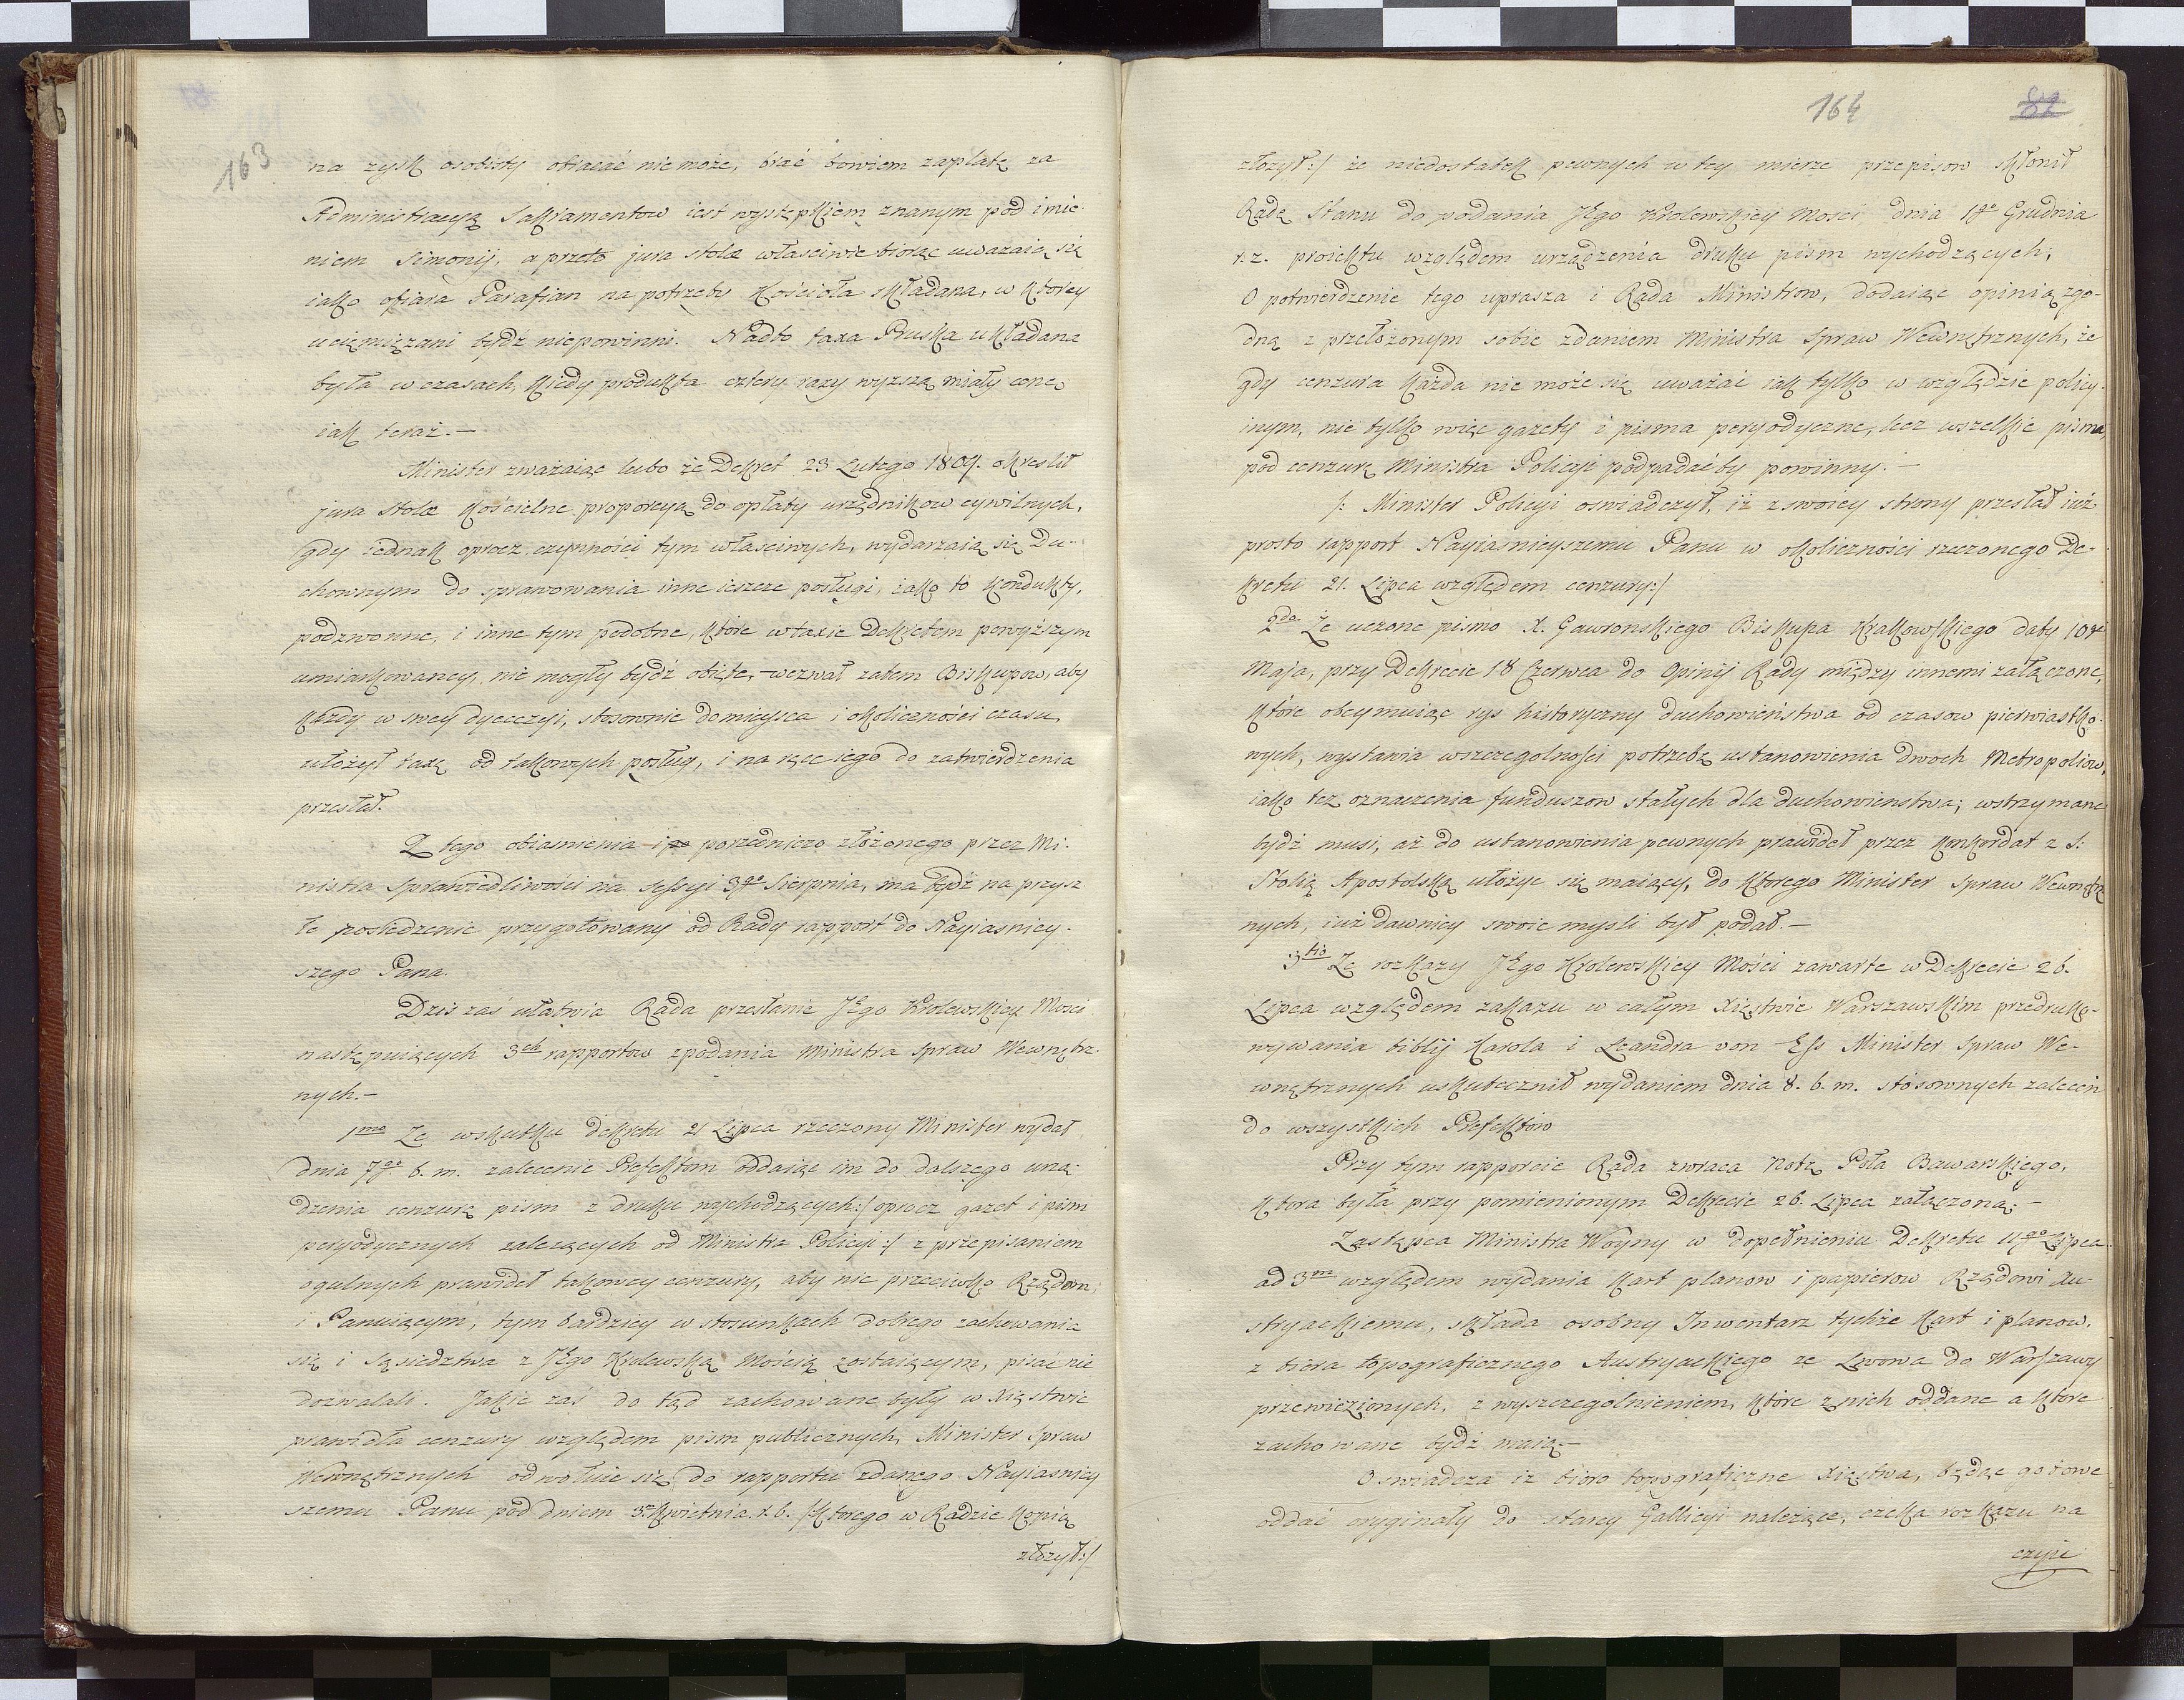 163
na zysk osobisty obracać nie może, brać bowiem zapłatę za
Administracyą Sakramentow iest występkiem znanym pod imie-
niem Simonij, a przeto jura stolæ właściwie biorąc uważaią się
iako ofiara Parafian na potrzeby Kościoła składana, w ktorey
uciemiężani bydź niepowinni. Nadto taxa Pruska układana
była w czasach, kiedy produkta cztery razy wyższą miały cenę
iak teraz.—
Minister zważaiąc lubo że Dekret 23 Lutego 1809. określił
jura stolæ kościelne proporcyą do opłaty urzędnikow cywilnych,
gdy iednak oprocz czynności tym właściwych, wydarzaią się Du-
chownym do sprawowania inne ieszcze posługi, iako to kondukty,
podzwonne, i inne tym podobne, ktore w taxie Dekretem powyższym
umiarkowaney, nie mogły bydź obięte, wezwał zatem Biskupow, aby
każdy w swey dyecezyi, stosownie do mieysca i okoliczności czasu
ułożył taxę od takowych posług, i na ręce iego do zatwierdzenia
przesłał.
Z tego obiasnienia i poprzedniczo złożonego przez Mi-
nistra Sprawiedliwości na sessyi 3go Sierpnia, ma bydź na przysz
łe posiedzenie przygotowany od Rady rapport do Nayiasniey-
szego Pana.
Dziś zaś ułatwia Rada przesłanie JEgo Krolewskiey Mosci
następuiących 3ch rapportow z podania Ministra Spraw Wewnętrz-
nych.—
1mo Ze wskutku dekretu 21 Lipca rzeczony Minister wydał
dnia 7go b. m. zalecenie Prefektom oddaiąc im do dalszego urzą-
dzenia cenzurę pism z druku wychodzących:/oprocz gazet i pism
peryodycznych zależących od Ministra Policyi:/ z przepisaniem
ogulnych prawideł takowey cenzury, aby nic przeciwko Rządom
i Panuiącym, tym bardziey w stosunkach dobrego zachowania
się i sąsiedztwa z JEgo Krolewską Mością zostaiącym, pisać nie
dozwalali. Jakie zaś do tąd zachowane były w Xięstwie
prawidła cenzury względem pism publicznych, Minister Spraw
Wewnętrznych odwołuie się do rapportu zdanego Nayiasniey
szemu Panu pod dniem 3. Kwietnia r. b. /:ktorego w Radzie kopią
złożył:/
164
82
złożył:/ że niedostatek pewnych w tey mierze przepisow skłonił
Radę Stanu do podania JEgo Krolewskiey Mosci dnia 1go Grudnia
r. z. proiektu względem urządzenia druku pism wychodzących;
O potwierdzenie tego uprasza i Rada Ministrow, dodaiąc opinią zgo-
dną z przełożonym sobie zdaniem Ministra Spraw Wewnętrznych, że
gdy cenzura każda nie może się uważać iak tylko w względzie policy-
inym, nie tylko więc gazety i pisma peryodyczne, lecz wszelkie pisma
pod cenzurę Ministra Policyi podpadać by powinny.—
/: Minister Policyi oswiadczył, iż z swoiey strony przesłał iuż
prosto rapport Nayiasnieyszemu Panu w okoliczności rzeczonego De-
kretu 21. Lipca względem cenzury:/
2do Ze uczone pismo X. Gawronskiego Biskupa Krakowskiego daty 10go
Maja, przy Dekrecie 18 Czerwca do Opinij Rady między innemi załączone,
ktore obeymuiąc rys historyczny duchowieństwa od czasow pierwiastko-
wych, wystawia wszczegolności potrzebę ustanowienia dwoch Metropoliow,
iako też oznaczenia funduszow stałych dla duchowienstwa; wstrzymane
bydź musi, aż do ustanowienia pewnych prawideł przez konkordat z S:
Stolią Apostolską ułożyc się maiący, do ktorego Minister Spraw Wewnętrz
nych, iuż dawniey swoie mysli był podał.—
3tio Ze rozkazy JEgo Krolewskiey Mości zawarte w Dekrecie 26.
Lipca względem zakazu w całym Xięstwie Warszawskim przedruko-
wywania biblij Karola i Leandra von Ess Minister Spraw We-
wnętrznych uskutecznił wydaniem dnia 8. b. m. stosownych zaleceń
do wszystkich Prefektow
Przy tym rapporcie Rada zwraca Notę Posła Bawarskiego,
ktora była przy pomienionym Dekrecie 26. Lipca załączoną.—
Zastępca Ministra Woyny w dopełnieniu Dekretu 11go Lipca
ad 3m względem wydania kart planow i papierow Rządowi Au-
stryackiemu, składa osobny Inwentarz tychże kart i planow,
z biora topograficznego Austryackiego ze Lwowa do Warszawy
przewiezionych, z wyszczegolnieniem, ktore z nich oddane a ktore
zachowane bydź maią.—
Oswiadcza iż bioro topograficzne Xięstwa, będąc gotowe
oddać oryginały do starey Gallicyi należące, czeka rozkazu na
czyie